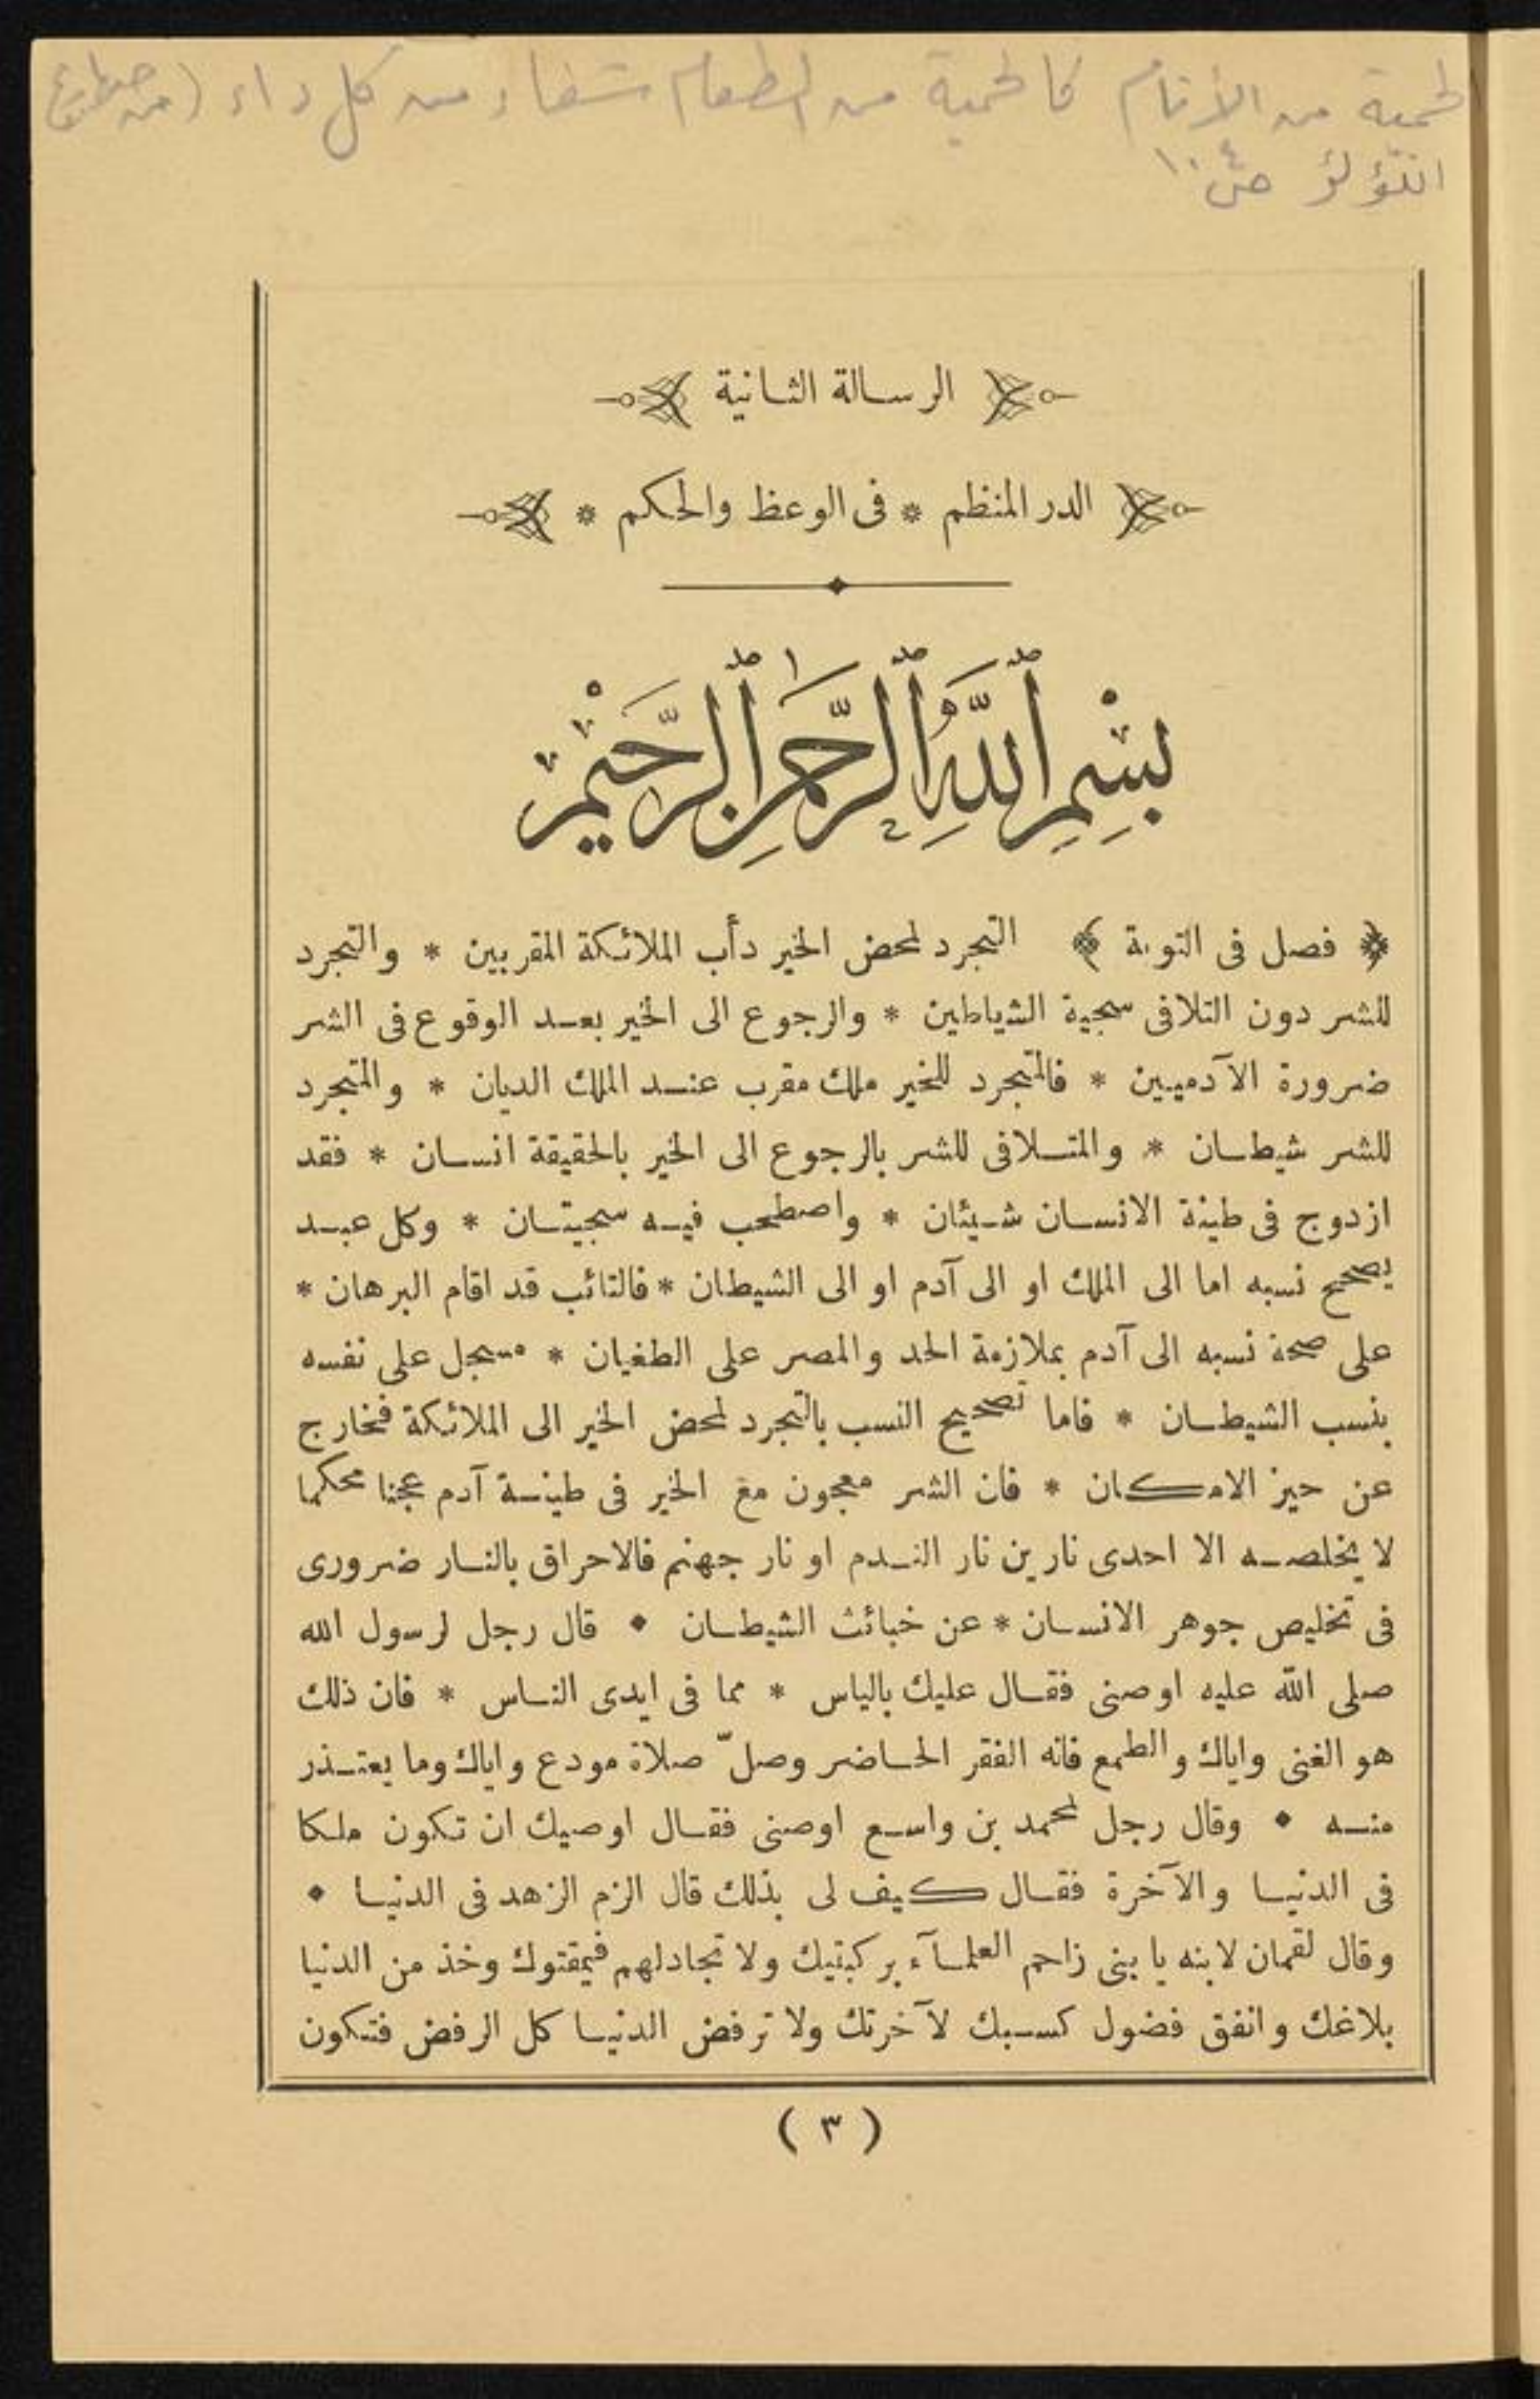 لحمية من الأنام كالحمية من الطعام شفاء من كل داء (من
اللؤلؤ ص ١٠٤
الرسالة الثانية
الدر المنظم * فى الوعظ والحكم *
بِسْمِ ٱللَّهِ ٱلرَّحْمٰنِ ٱلرَّحِيْمِ
﴿ فصل فى التوبة ﴾ التجرد لمحض الخير دأب الملائكة المقربين * والتجرد
للشر دون التلافى سجية الشياطين * والرجوع الى الخير بعد الوقوع فى الشر
ضرورة الآدميين * فالمتجرد للخير ملك مقرب عند الملك الديان * والمتجرد
للشر شيطان * والمتلافى للشر بالرجوع الى الخير بالحقيقة انسان * فقد
ازدوج فى طينة الانسان شيئان * واصطحب فيه سجيتان * وكل عبد
يصحح نسبه اما الى الملك او الى آدم او الى الشيطان * فالتائب قد اقام البرهان *
على صحة نسبه الى آدم بملازمة الحد والمصر على الطغيان * مسجل على نفسه
بنسب الشيطان * فاما تصحيح النسب بالتجرد لمحض الخير الى الملائكة فخارج
عن حيز الامكان * فان الشر معجون مع الخير فى طينة آدم عجنا محكما
لا يخلصه الا احدى نارين نار الندم او نار جهنم فالاحراق بالنار ضرورى
فى تخليص جوهر الانسان * عن خبائث الشيطان ♦ قال رجل لرسول الله
صلى الله عليه اوصنى فقال عليك بالياس * مما فى ايدى الناس * فان ذلك
هو الغنى واياك والطمع فانه الفقر الحاضر وصلّ صلاة مودع واياك وما يعتذر
منه ♦ وقال رجل لمحمد بن واسع اوصنى فقال اوصيك ان تكون ملكا
فى الدنيا والآخرة فقال كيف لى بذلك قال الزم الزهد فى الدنيا ♦
وقال لقمان لابنه يا بنى زاحم العلمآء بركبتيك ولا تجادلهم فيمقتوك وخذ من الدنيا
بلاغك وانفق فضول كسبك لآخرتك ولا ترفض الدنيا كل الرفض فتكون
( ٣ )